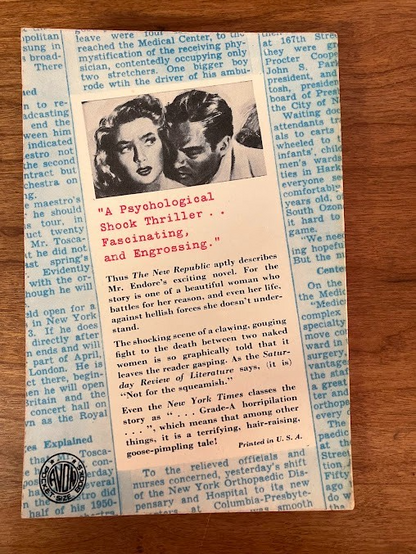 politan
sung in
s broad-
There
leave were four
reached the Medical Center, to the
mystification of the receiving phy-
sician, contentedly occupying only
two stretchers. One bigger boy
rode with the driver of his ambu-
at 167th Stre
they were gr
Procter Coope
John S. Park
president, and
tosh, presiden
board of Pres
the City of N
Waiting do
attendants t
als to carts
wheeled to
infants', chi
men's wards
ties in Hark
everyone se
comfortably
years old, o
South Ozon
it hard to
game.
"We nee
ing hopeful
But the n
Cente
On the
the Medic
"Medic
complex
specialty
move cu
ward in
surgery,
vantage
the stat
a great
ter and
orthope
every o
The
paedic
at the
Street
tion,
Fifty
ago.
Ex
do w
on to re-
adcasting
end the
ween him
indicated
estro not
e second
ntract but
chestra on
g.
maestro's
he should
tour, in
uct twenty
Mr. Tosca-
at he did not
ast spring's
Evidently
with the or-
hough he will
eld open for a
in New York
3. If he does
directly after
n ends and will
part of April,
London. He is
ct there, begin-
en he will open
Britain and the
concert hall on
wn as the Royal
es Explained
"A Psychological
Shock Thriller . .
Fascinating,
and Engrossing."
Thus The New Republic aptly describes
Mr. Endore's exciting novel. For the
story is one of a beautiful woman who
battles for her reason, and even her life,
against hellish forces she doesn't under-
stand.
The shocking scene of a clawing, gouging
fight to the death between two naked
women is so graphically told that it
leaves the reader gasping. As the Satur-
day Review of Literature says, (it is)
"Not for the squeamish."
Even the New York Times classes the
story as ". . . Grade-A horripilation
. . .", which means that among other
things, it is a terrifying, hair-raising,
goose-pimpling tale!
Printed in U. S. A.
AVON
POCKET SIZE BOOKS
half of his 1950-
To the relieved officials and
nurses concerned, yesterday's shift
of the New York Orthopaedic Dis-
pensary and Hospital to its new
quarters at Columbia-Presbyte-